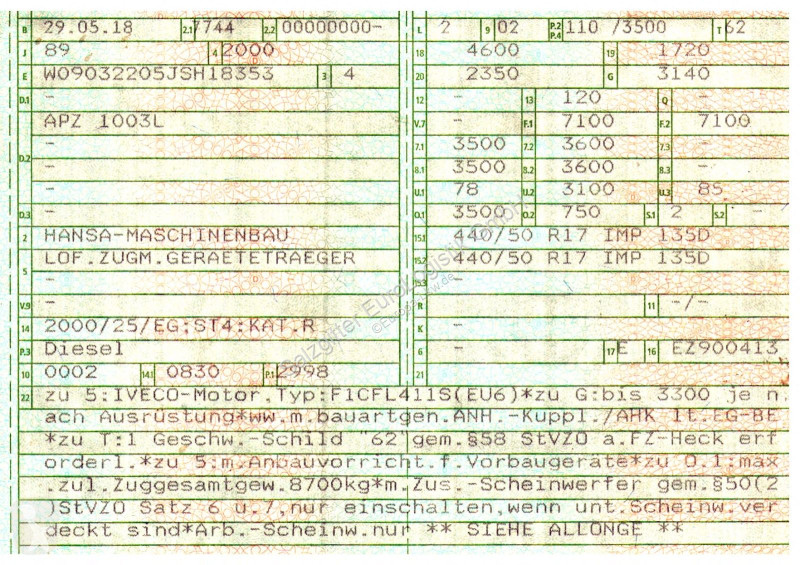 B 29.05.18 2.1 7744 2.2 00000000- L 2 9 02 P.2 P.4 110 /3500 T 62
J 89 4 2000 18 4600 19 1720
E W09032205JSH18353 3 4 20 2350 G 3140
D.1 - 12 - 13 120 Q -
APZ 1003L V.7 - F.1 7100 F.2 7100
D.2 - 7.1 3500 7.2 3600 7.3 -
- 8.1 3500 8.2 3600 8.3 -
- U.1 78 U.2 3100 U.3 85
D.3 - O.1 3500 O.2 750 S.1 2 S.2 - /
2 HANSA-MASCHINENBAU 15.1 440/50 R17 IMP 135D
5 LOF.ZUGM.GERAETETRAEGER 15.2 440/50 R17 IMP 135D
- 15.3 -
V.9 - R - 11 -/-
14 2000/25/EG;ST4:KAT.R K -
P.3 Diesel 6 - 17 E 16 EZ900413
10 0002 14.1 0830 P.1 2998 21
22 zu 5:IVECO-Motor,Typ:F1CFL411S(EU6)*zu G:bis 3300 je n
ach Ausrüstung*ww.m.bauartgen.ANH.-Kuppl./AHK lt.EG-BE
*zu T:1 Geschw.-Schild "62"gem.§58 StVZO a.FZ-Heck erf
orderl.*zu 5:m.Anbauvorricht.f.Vorbaugeräte*zu O.1:max
.zul.Zuggesamtgew.8700kg*m.Zus.-Scheinwerfer gem.§50(2
)StVZO Satz 6 u.7,nur einschalten,wenn unt.Scheinw.ver
deckt sind*Arb.-Scheinw.nur ** SIEHE ALLONGE **
Salzgitter EuroLogistik GmbH